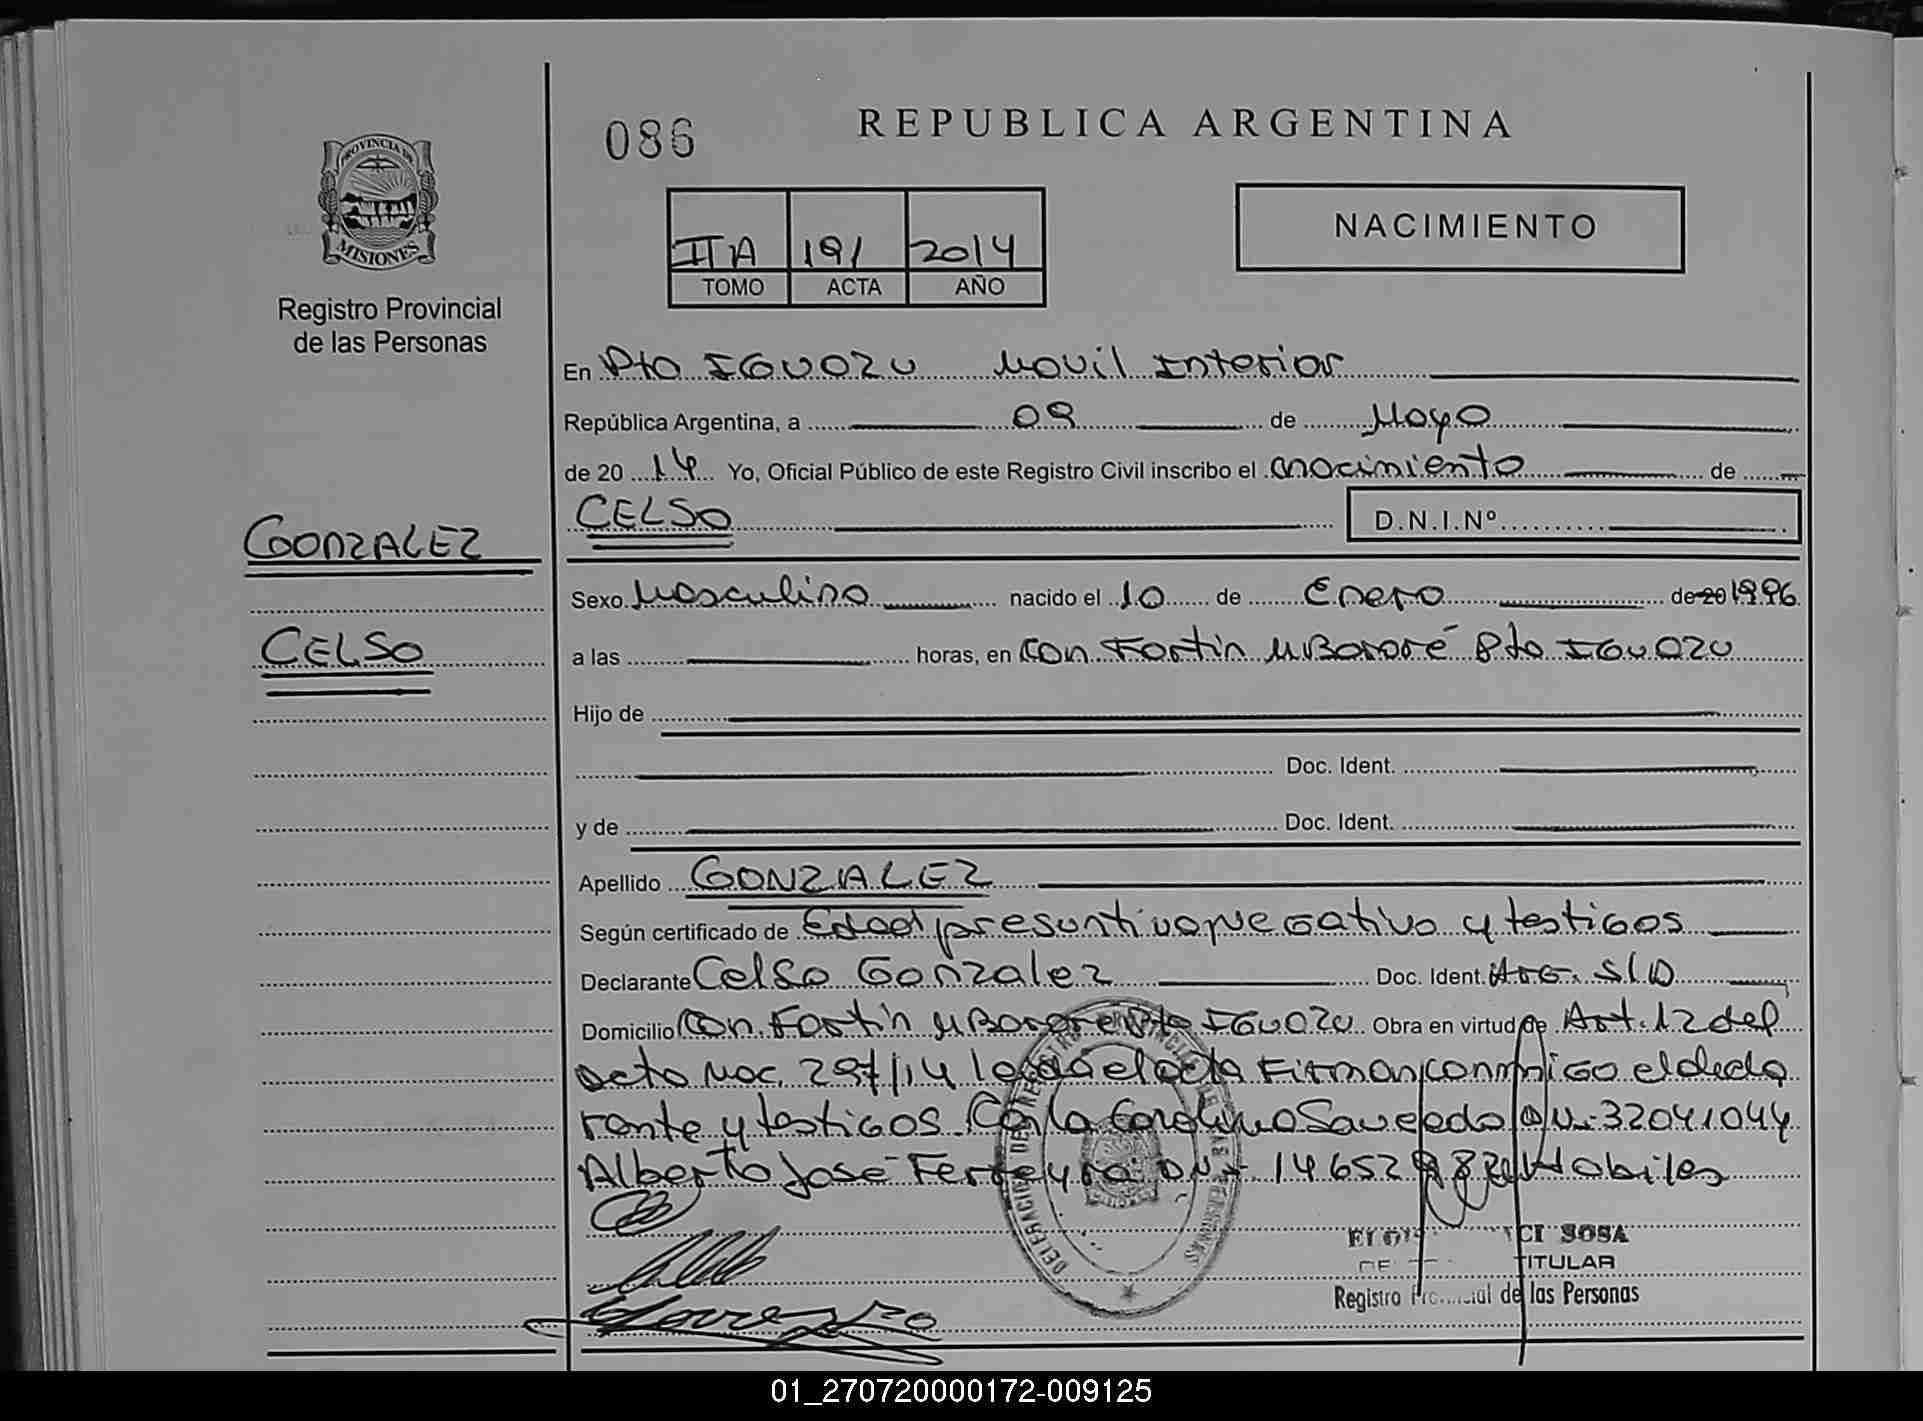 086
REPUBLICA ARGENTINA
PROVINCIA DE
MISIONES
Registro Provincial
de las Personas
IIA 191 2014
TOMO ACTA AÑO
NACIMIENTO
En Pto Iguazu Movil Interior
República Argentina, a 09 de Mayo
de 20 14 Yo, Oficial Público de este Registro Civil inscribo el nacimiento de
CELSO D.N.I.Nº
GONZALEZ
CELSO
Sexo Masculino nacido el 10 de Enero de 20 1996
a las horas, en Con Fortin MBororé Pto Iguazu
Hijo de
Doc. Ident.
y de Doc. Ident.
Apellido GONZALEZ
Según certificado de Edad presuntiva negativo y testigos
Declarante Celso Gonzalez Doc. Ident. Arg. S/D
Domicilio Con Fortin MBororé Pto Iguazu Obra en virtud de Art. 12 del
acta 297/14 leida el acta Firman conmigo el decla
rante y testigos Carla Carolina Saucedo 32041044
Alberto José Ferreyra Habiles
SOSA
TITULAR
Registro de las Personas
01_270720000172-009125